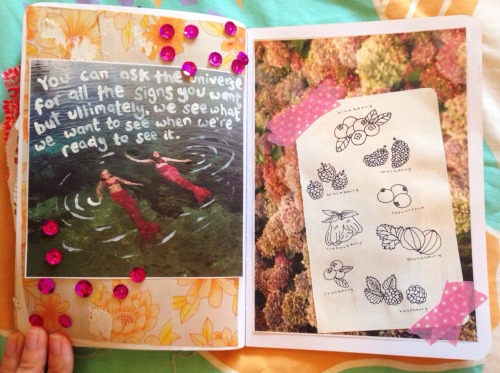 You can ask the universe
for all the signs you want
but ultimately, we see what
we want to see when we're
ready to see it.
blueberry
mulberry
strawberry
redcurrant
gooseberry
cranberry
raspberry